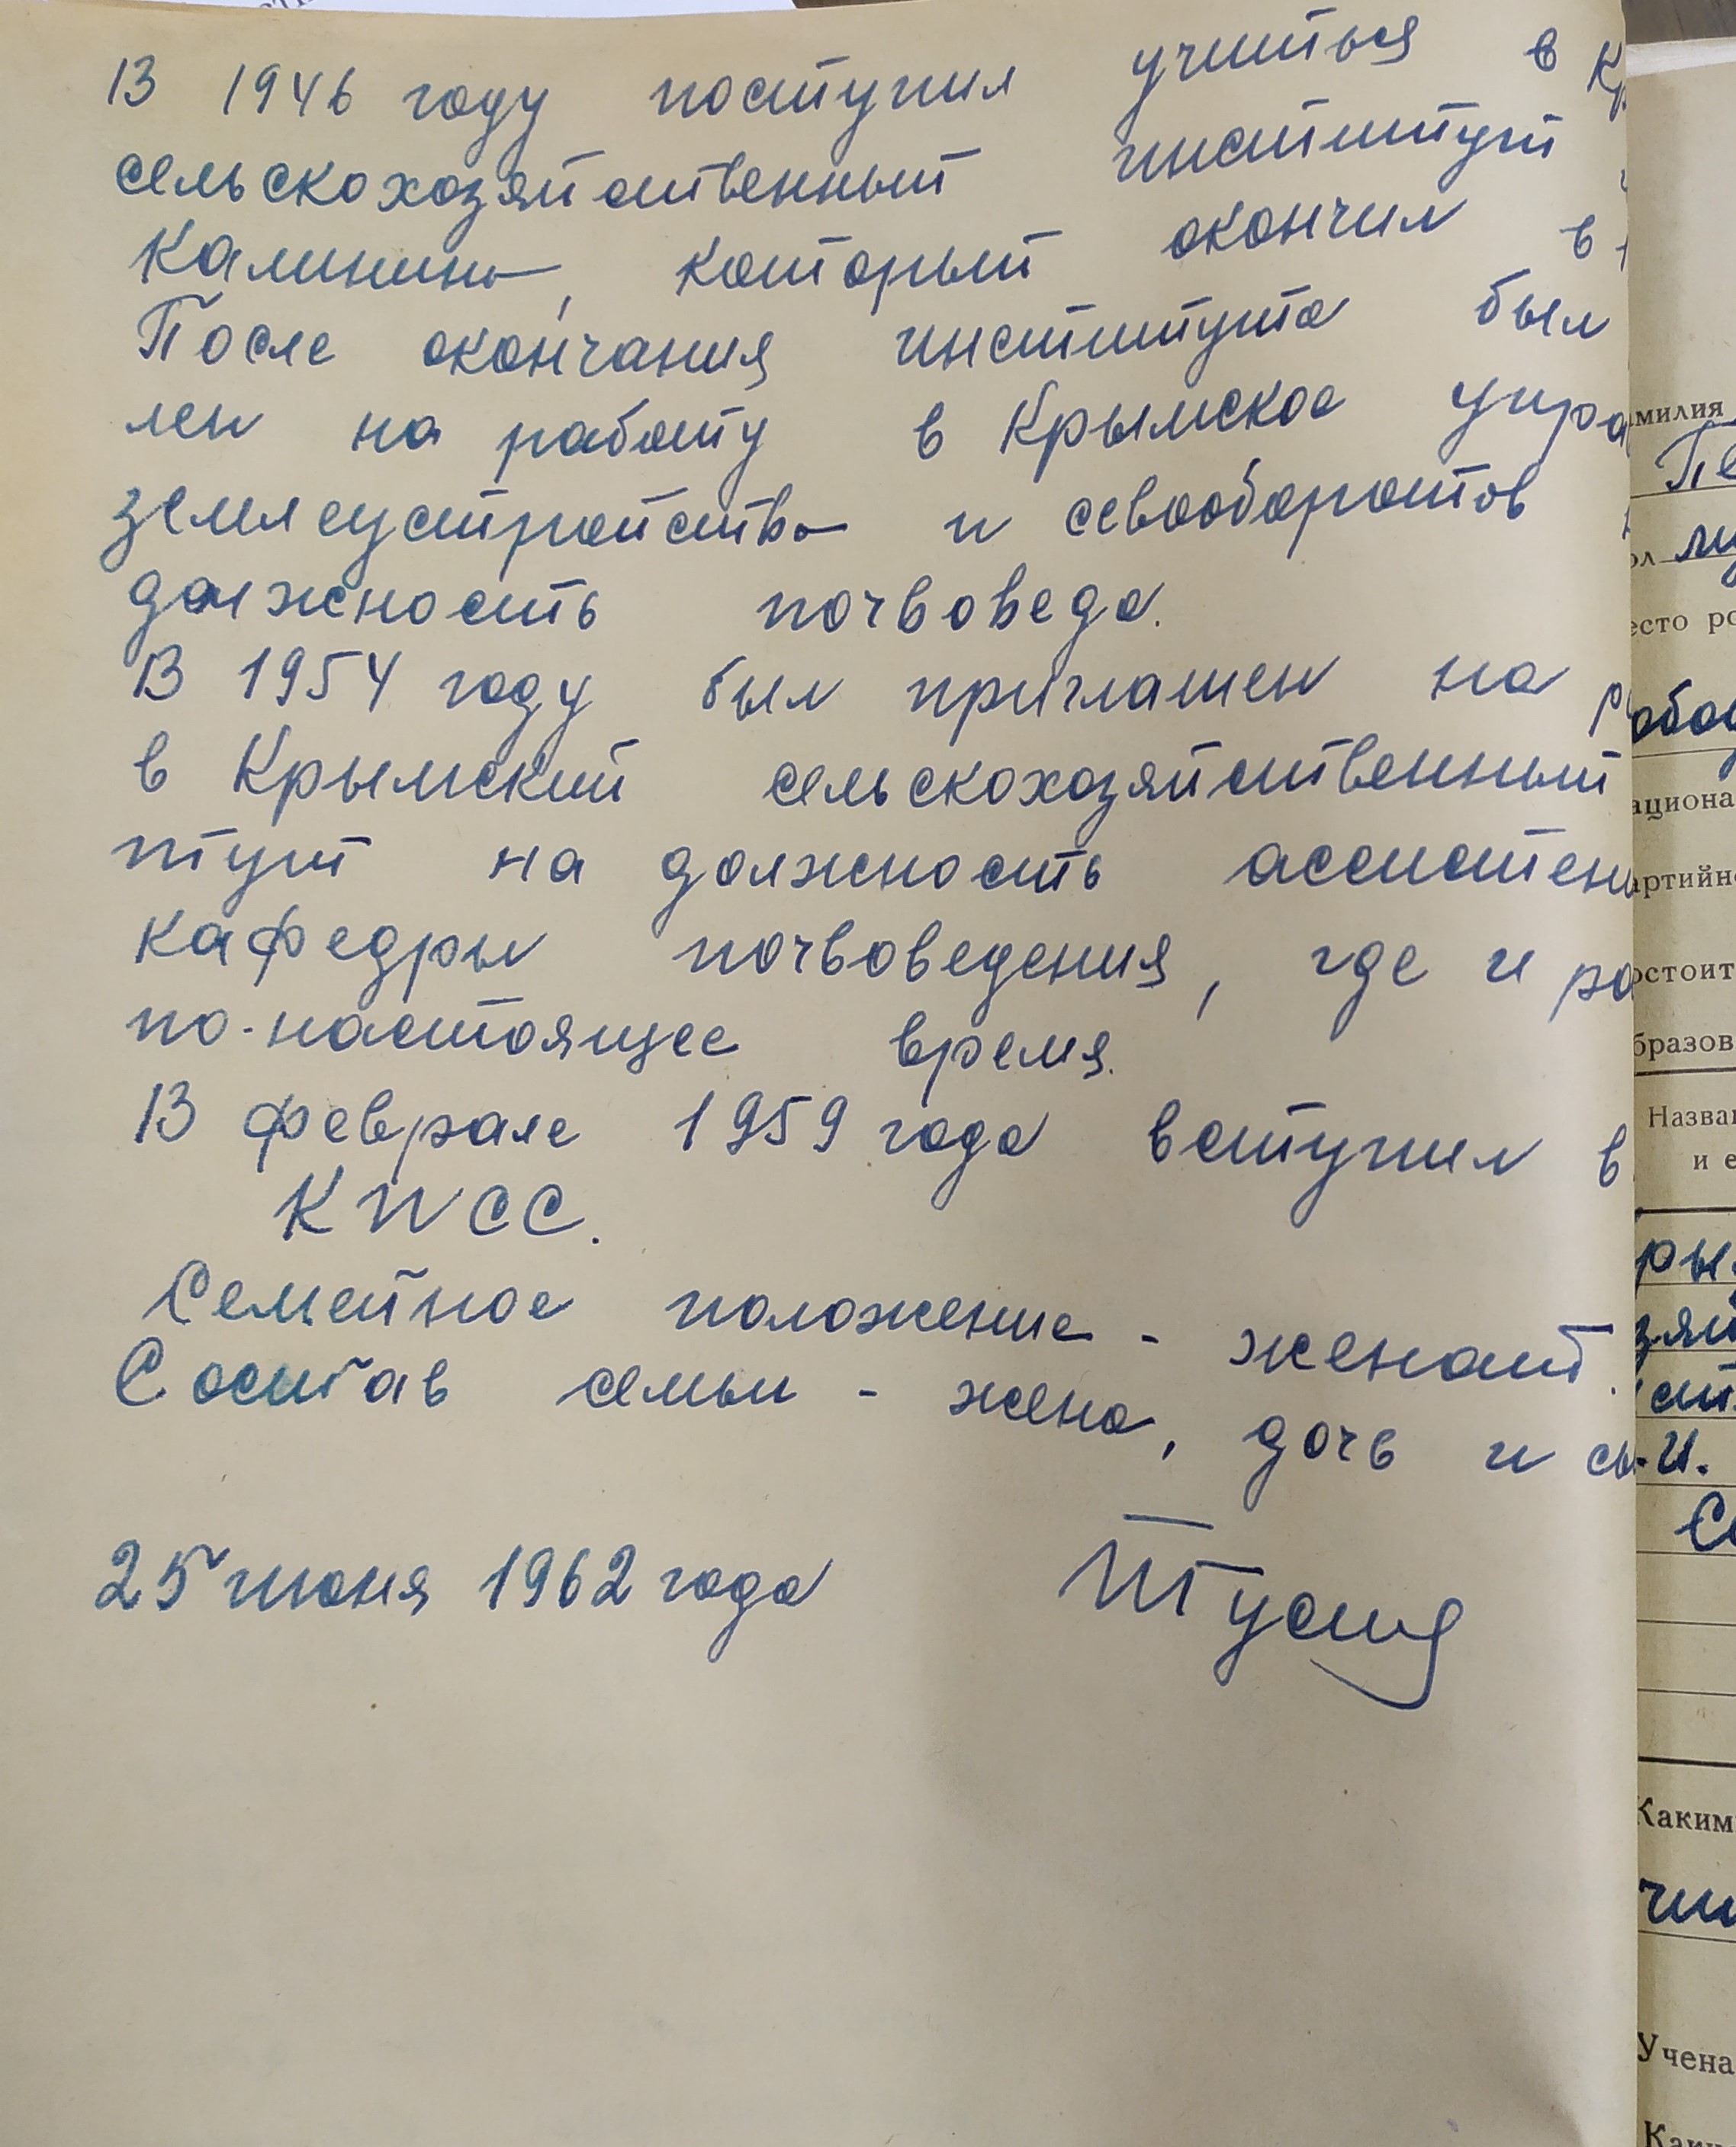 В 1946 году поступил учиться в Кр
сельскохозяйственный институт
Калинина, который окончил в
После окончания института был
лен на работу в Крымское упра
землеустройства и севооборотов
должность почвоведа.
В 1954 году был приглашен на р
в Крымский сельскохозяйственный
титут на должность ассистен
кафедры почвоведения, где и ра
по-настоящее время.
В феврале 1959 года вступил в
КПСС.
Семейное положение - женат.
Состав семьи - жена, дочь и сы
25 июня 1962 года
амилия
Пе
ол му
есто ро
обод
ациона
артийно
остоит
бразов
Назва
и е
ры
зяй
ст
.И.
Каким
чи
Учена
Каки